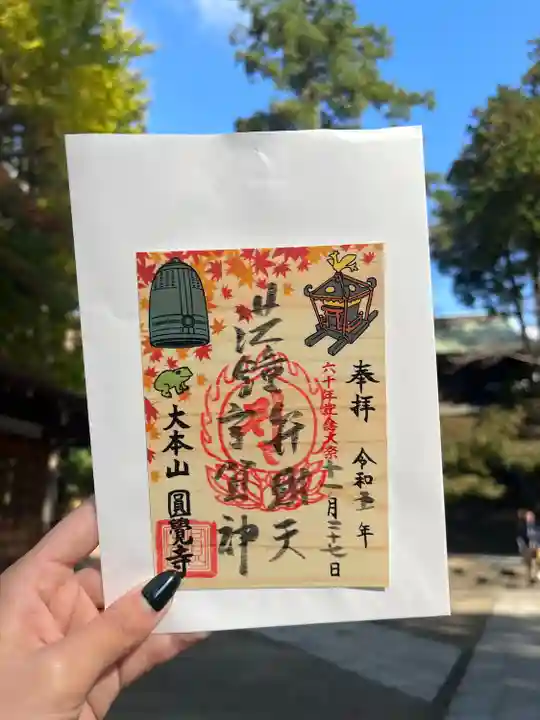 奉拝 令和五年
十一月二十七日
六十年記念大祭
洪鐘
弁財天
宇賀神
大本山 圓覺寺